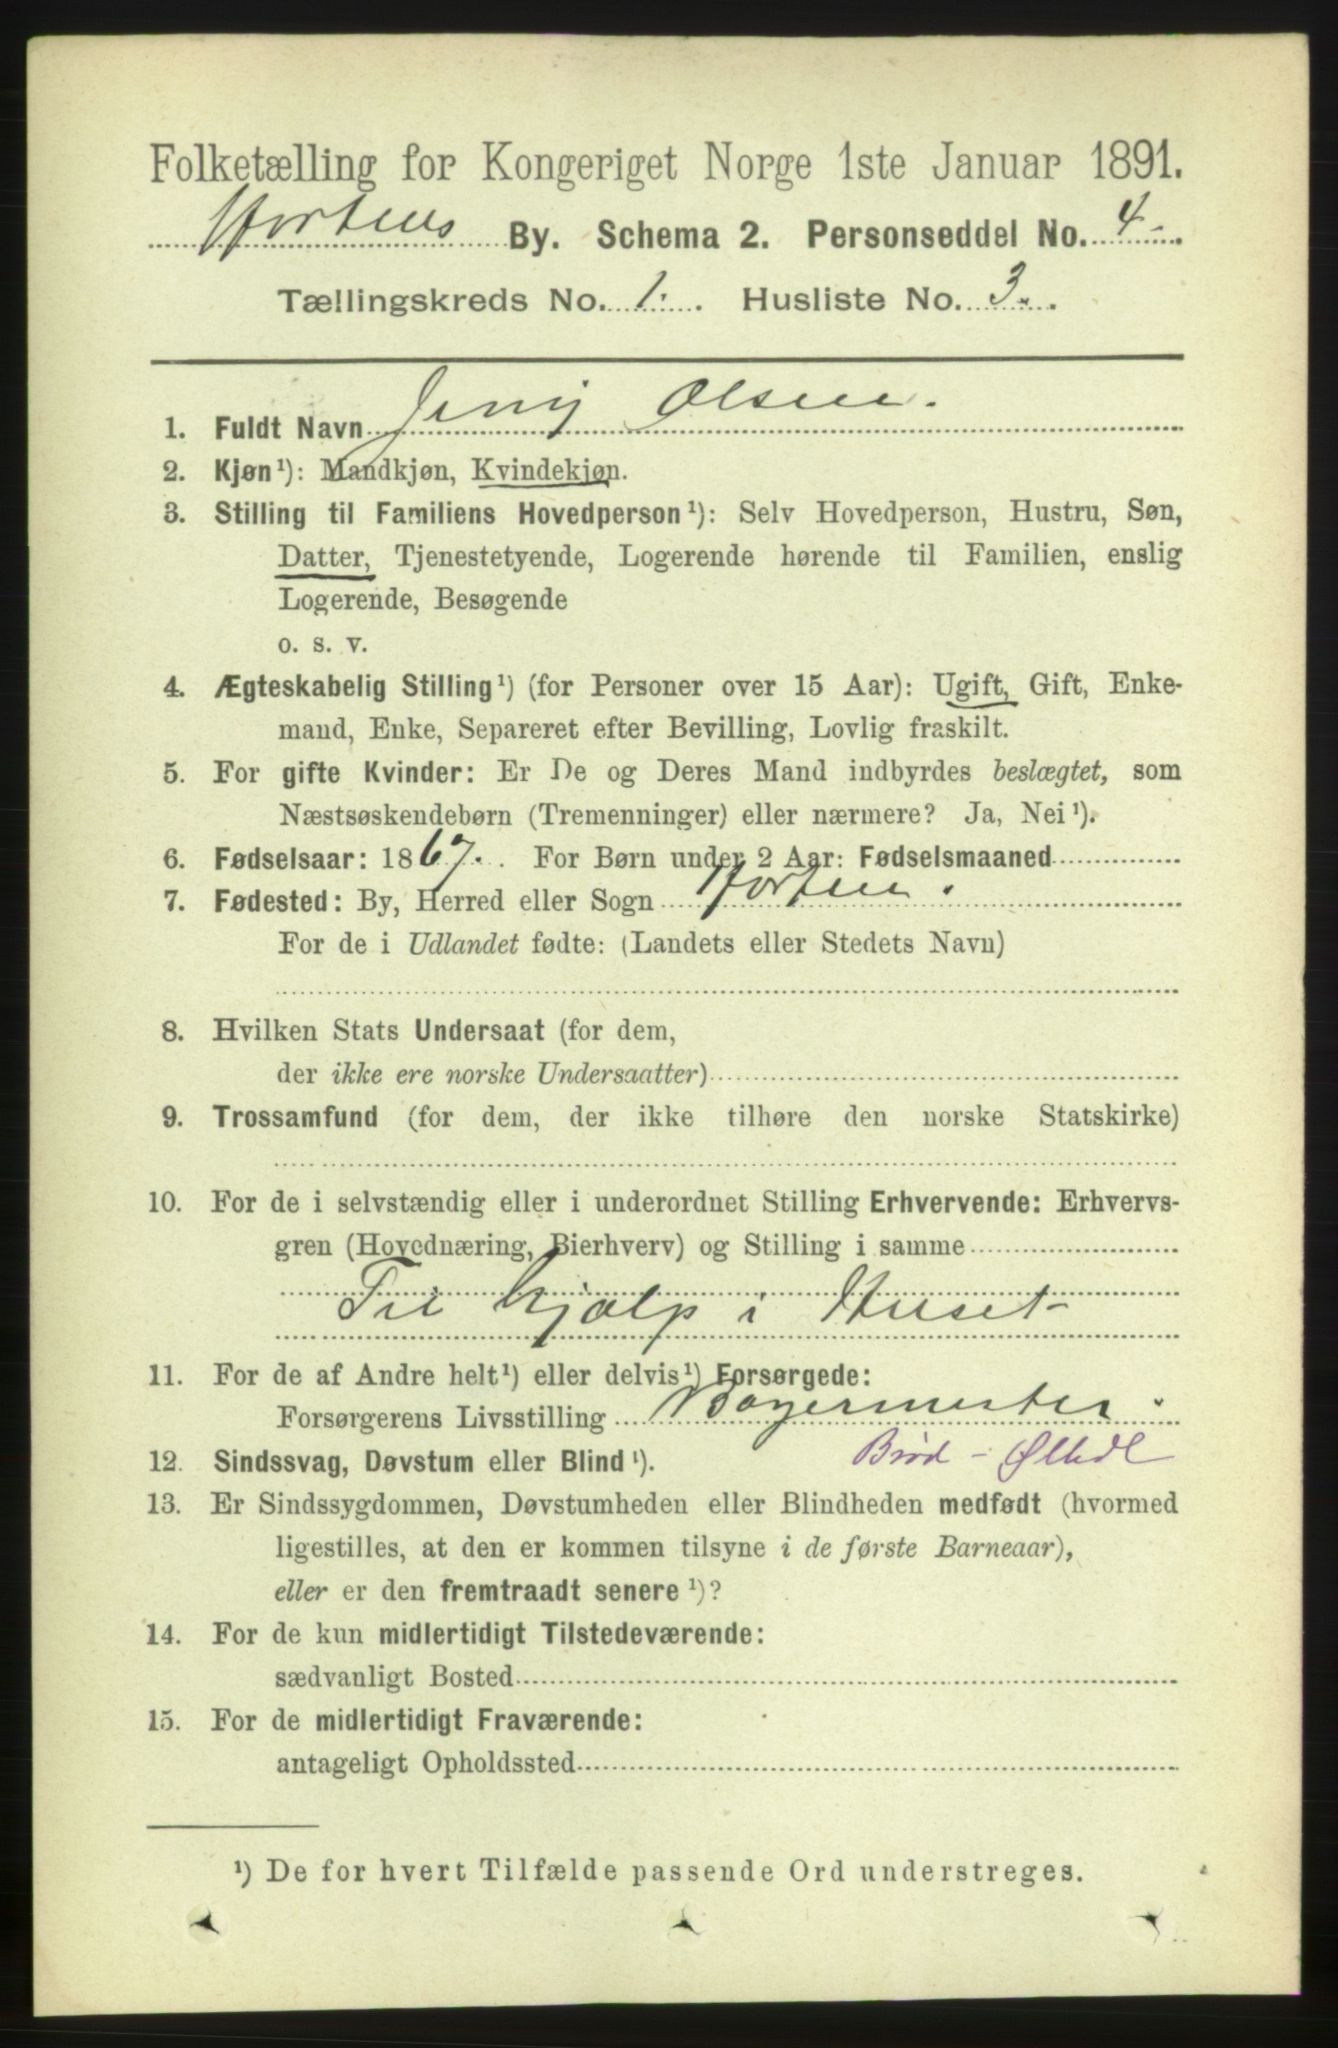 Folketælling for Kongeriget Norge 1ste Januar 1891.
Hortens By. Schema 2. Personseddel No. 4-
Tællingskreds No. 1. Husliste No. 3.
1. Fuldt Navn Jenny Olsen.
2. Kjøn¹): Mandkjøn, Kvindekjøn.
3. Stilling til Familiens Hovedperson¹): Selv Hovedperson, Hustru, Søn,
Datter, Tjenestetyende, Logerende hørende til Familien, enslig
Logerende, Besøgende
o. s. v.
4. Ægteskabelig Stilling¹) (for Personer over 15 Aar): Ugift, Gift, Enke-
mand, Enke, Separeret efter Bevilling, Lovlig fraskilt.
5. For gifte Kvinder: Er De og Deres Mand indbyrdes beslægtet, som
Næstsøskendebørn (Tremenninger) eller nærmere? Ja, Nei¹).
6. Fødselsaar: 1867. For Børn under 2 Aar: Fødselsmaaned
7. Fødested: By, Herred eller Sogn Horten.
For de i Udlandet fødte: (Landets eller Stedets Navn)
8. Hvilken Stats Undersaat (for dem,
der ikke ere norske Undersaatter)
9. Trossamfund (for dem, der ikke tilhøre den norske Statskirke)
10. For de i selvstændig eller i underordnet Stilling Erhvervende: Erhvervs-
gren (Hovednæring, Bierhverv) og Stilling i samme
Til hjælp i Huset
11. For de af Andre helt¹) eller delvis¹) Forsørgede:
Forsørgerens Livsstilling Bagermester.
Brød - Ølhdl
12. Sindssvag, Døvstum eller Blind¹).
13. Er Sindssygdommen, Døvstumheden eller Blindheden medfødt (hvormed
ligestilles, at den er kommen tilsyne i de første Barneaar),
eller er den fremtraadt senere¹)?
14. For de kun midlertidigt Tilstedeværende:
sædvanligt Bosted
15. For de midlertidigt Fraværende:
antageligt Opholdssted
¹) De for hvert Tilfælde passende Ord understreges.